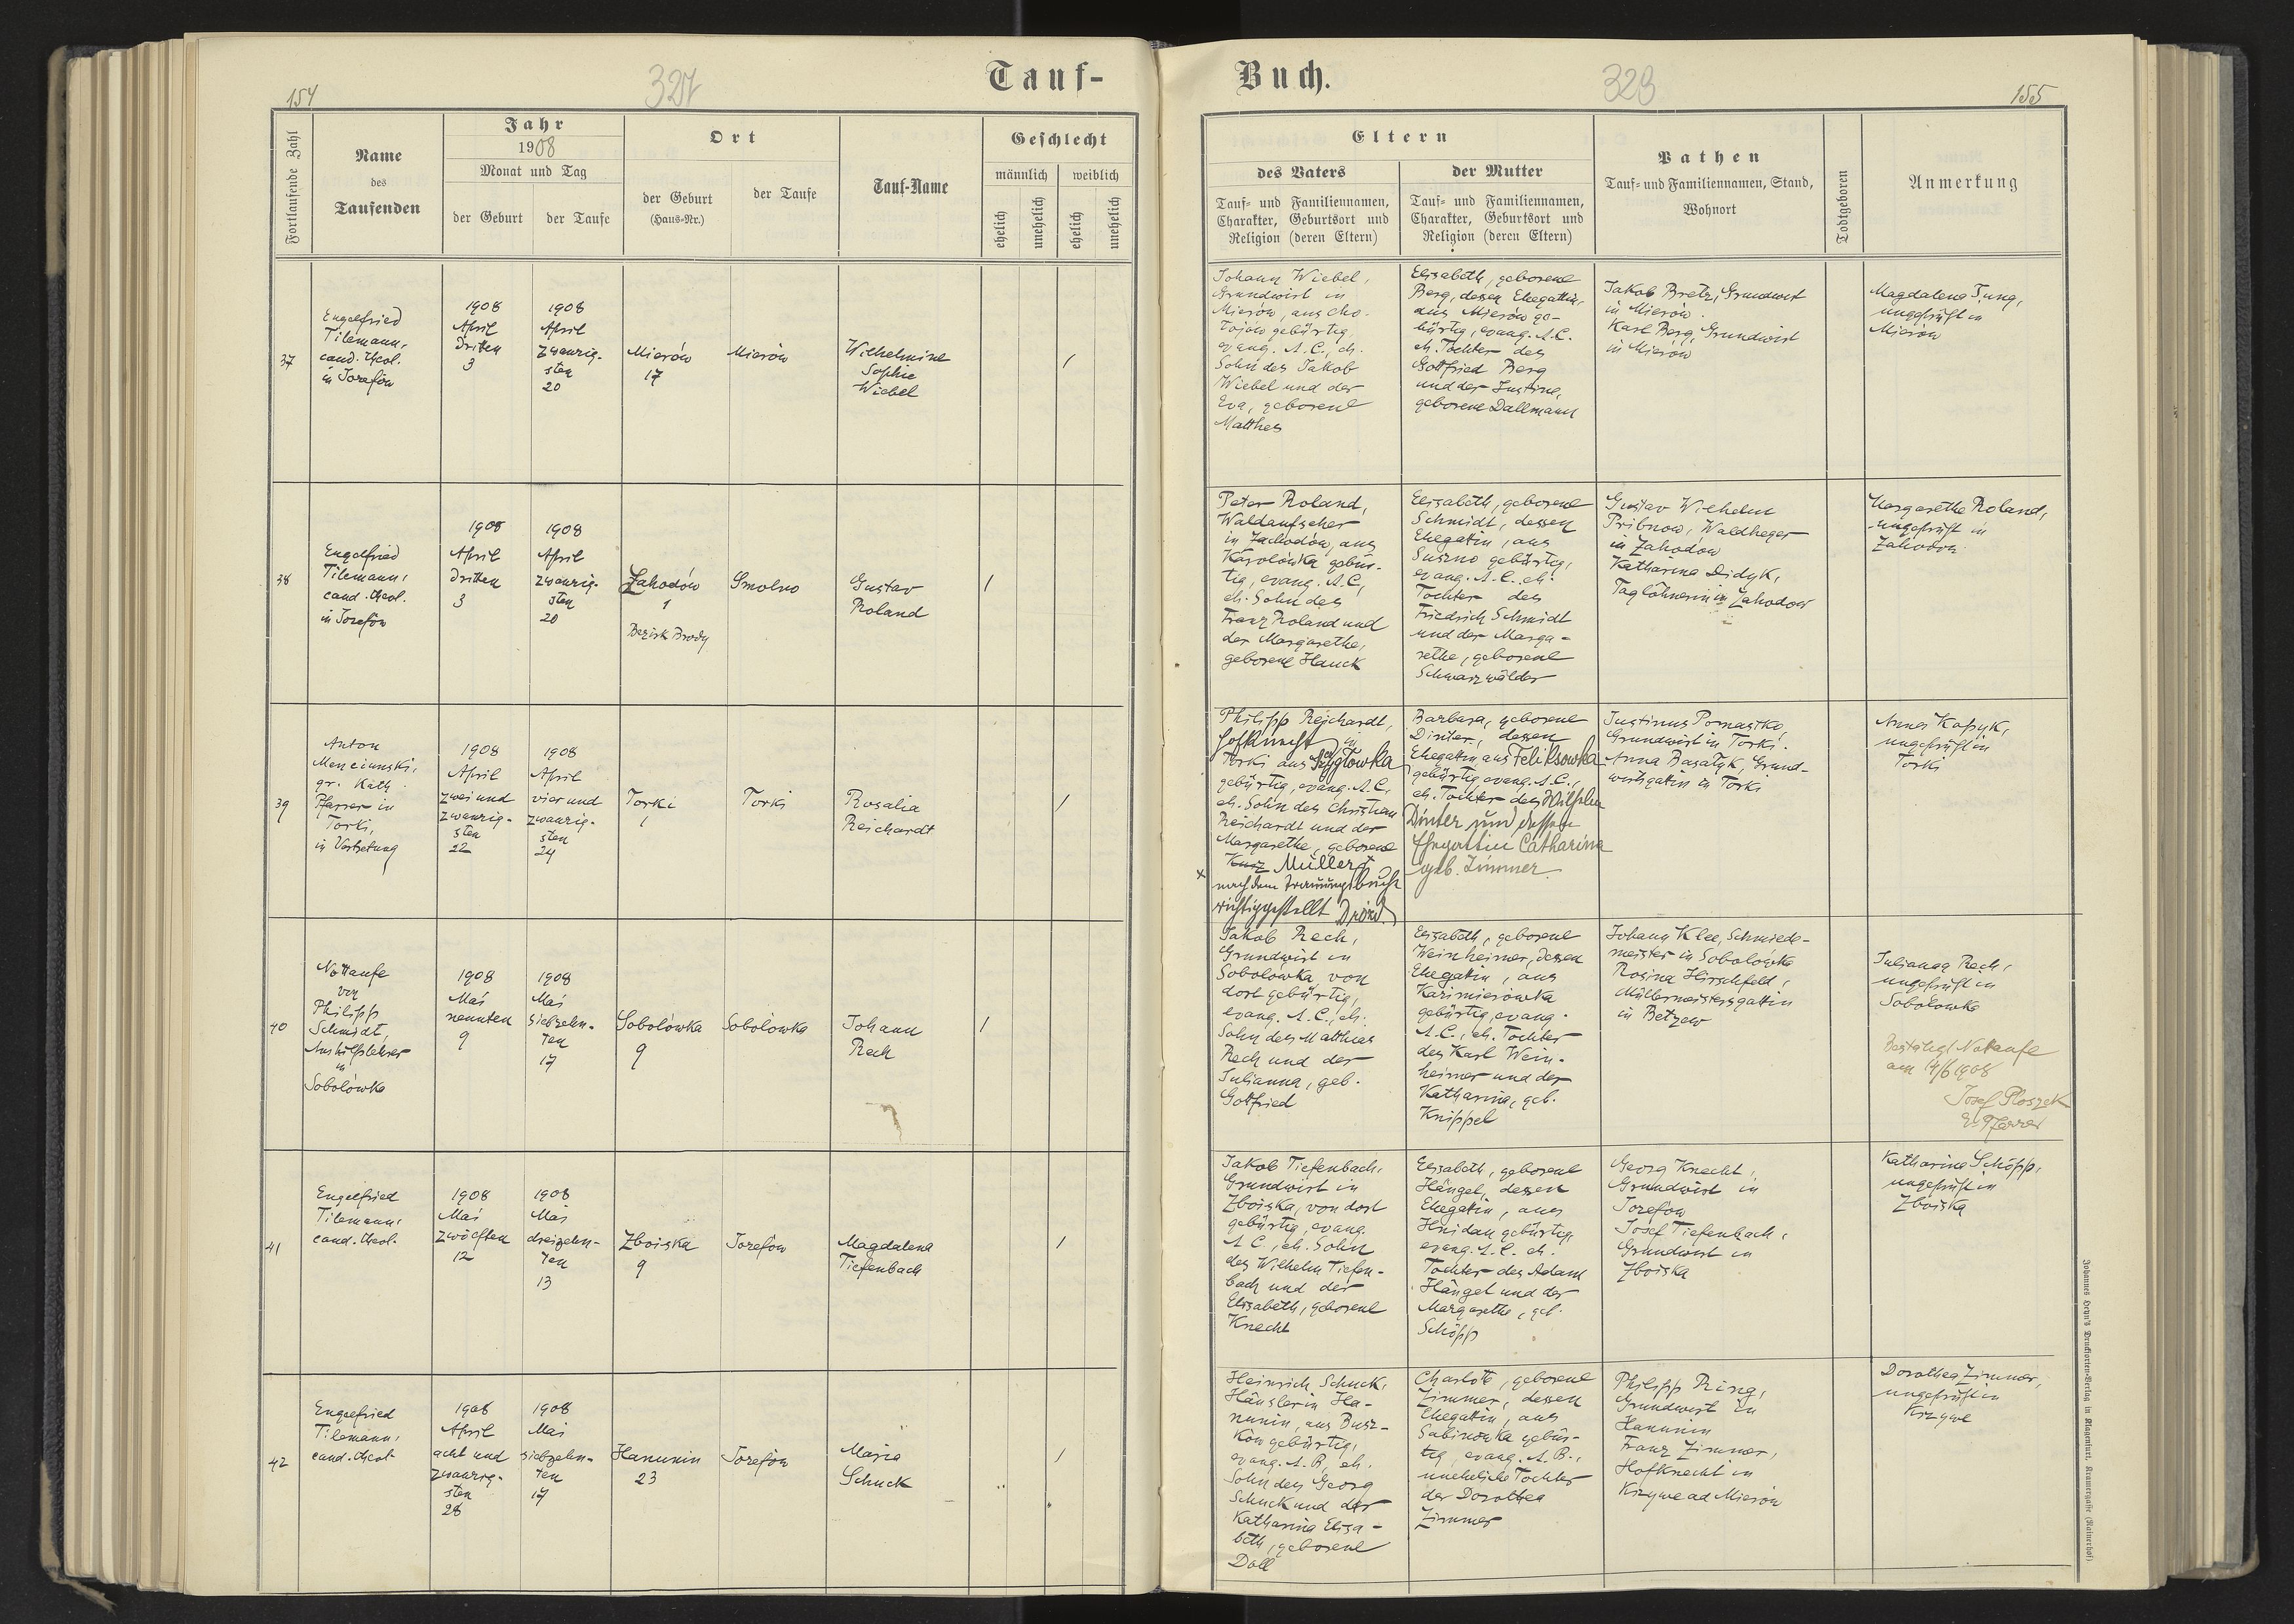 154
327
Tauf-
Fortlaufende Zahl
Name
des
Taufenden
Jahr
1908
Monat und Tag
der Geburt
der Taufe
Ort
der Geburt
(Haus-Nr.)
der Taufe
Tauf-Name
Geschlecht
männlich
weiblich
ehelich
unehelich
ehelich
unehelich
37
Engelfried
Tilemann,
cand. theol.
in Josefów
1908
April
dritten
3
1908
April
zwanzig-
sten
20
Mierów
17
Mierów
Wilhelmine
Sophie
Wiebel
/
38
Engelfried
Tilemann,
cand. theol.
in Josefów
1908
April
dritten
3
1908
April
zwanzig-
sten
20
Zahodów
1
Bezirk Brody
Smolno
Gustav
Roland
/
39
Anton
Menciunski,
gr. Kath.
Pfarrer in
Torki,
in Vertretung
1908
April
zwei und
zwanzig-
sten
22
1908
April
vier und
zwanzig-
sten
24
Torki
1
Torki
Rosalia
Reichardt
/
40
Nottaufe
von
Philipp
Schmidt,
Aushilfslehrer
in
Sobolówka
1908
Mai
neunten
9
1908
Mai
siebzehn-
ten
17
Sobolówka
9
Sobolówka
Johann
Rech
/
41
Engelfried
Tilemann,
cand. theol.
1908
Mai
zwölften
12
1908
Mai
dreizehn-
ten
13
Zboiska
9
Josefów
Magdalena
Tiefenbach
/
42
Engelfried
Tilemann,
cand. theol.
1908
April
acht und
zwanzig-
sten
28
1908
Mai
siebzehn-
ten
17
Hanunin
23
Josefów
Maria
Schuck
/
Buch.
328
155
Eltern
des Vaters
Tauf- und Familiennamen,
Charakter, Geburtsort und
Religion (deren Eltern)
der Mutter
Tauf- und Familiennamen,
Charakter, Geburtsort und
Religion (deren Eltern)
Pathen
Tauf- und Familiennamen, Stand,
Wohnort
Todtgeboren
Anmerkung
Johann Wiebel,
Grundwirt in
Mierów, aus Cho-
tojów gebürtig,
evang. A.C., eh.
Sohn des Jakob
Wiebel und der
Eva, geborene
Matthes
Elisabeth, geborene
Berg, dessen Ehegattin,
aus Mierów ge-
bürtig, evang. A.C.
eh. Tochter des
Gottfried Berg
und der Justine,
geborene Dallmann
Jakob Bretz, Grundwirt
in Mierów.
Karl Berg, Grundwirt
in Mierów
Magdalena Jung,
ungeprüft in
Mierów
Peter Roland,
Waldaufseher
in Zachodów, aus
Karolówka gebür-
tig, evang. A.C.,
eh. Sohn des
Franz Roland und
der Margarethe,
geborene Hauck
Elisabeth, geborene
Schmidt, dessen
Ehegattin, aus
Suszno gebürtig,
evang. A.C. eh.
Tochter des
Friedrich Schmidt
und der Marga-
rethe, geborene
Schwarzwälder
Gustav Wilhelm
Pribnow, Waldheger
in Zahodów
Katharina Didyk,
Taglöhnerin in Zahodow
Margarethe Roland,
ungeprüft in
Zahodow.
Philipp Reichardt,
Hofknecht in
Torki aus Szyglowka
gebürtig, evang. A.C.,
eh. Sohn des Christian
Reichardt und der
Margarethe, geborene
Kurz Müller x
x
nach dem Trauungsbuche
richtiggestellt Drózd
Barbara, geborene
Dinter, dessen
Ehegattin aus Feliksowka
gebürtig evang. A.C.,
eh. Tochter des Wilhelm
Dinter und dessen
Ehegattin Catharina
geb. Zimmer.
Justinus Pomastko,
Grundwirt in Torki.
Anna Basatyk, Grund-
wirtsgattin in Torki
Anna Kapyk,
ungeprüft in
Torki
Jakob Rech,
Grundwirt in
Sobolówka von
dort gebürtig,
evang. A.C., eh.
Sohn des Matthias
Rech und der
Julianna, geb.
Gottfried
Elisabeth, geborene
Weinheimer, dessen
Ehegattin, aus
Kazimierówka
gebürtig, evang.
A.C., eh. Tochter
des Karl Wein-
heimer und der
Katharina, geb.
Knippel
Johann Klee, Schmiede-
meister in Sobolowka
Rosina Hirschfeld,
Müllermeistersgattin
in Betzew
Julianna Rech,
ungeprüft in
Sobolowka
Bestätigt Nottaufe
am 14/6 1908
Josef Ploszek
Ev. Pfarrer
Jakob Tiefenbach,
Grundwirt in
Zboiska, von dort
gebürtig, evang.
A.C., eh. Sohn
des Wilhelm Tiefen-
bach und der
Elisabeth, geborene
Knecht
Elisabeth, geborene
Hängel, dessen
Ehegattin, aus
Hnidau gebürtig,
evang. A.C. eh.
Tochter des Adam
Hängel und der
Margarethe, geb.
Schöpp
Georg Knecht,
Grundwirt in
Josefow
Josef Tiefenbach,
Grundwirt in
Zboiska
Katharina Schöpp,
ungeprüft in
Zboiska
Heinrich Schuck,
Häusler in Ha-
nunin, aus Busz-
kow gebürtig,
evang. A.B., eh.
Sohn des Georg
Schuck und der
Katharina Elisa-
beth, geborene
Doll
Charlotte, geborene
Zimmer, dessen
Ehegattin, aus
Sabinowka gebür-
tig, evang. A.B.,
uneheliche Tochter
der Dorothea
Zimmer
Philipp Ring,
Grundwirt in
Hanunin
Franz Zimmer,
Hofknecht in
Krzywe ad Mierów
Dorothea Zimmer,
ungeprüft in
Krzywe
Johannes Heyn's Drucksorten-Verlag in Klagenfurt, Kramergasse (Rainerhof)